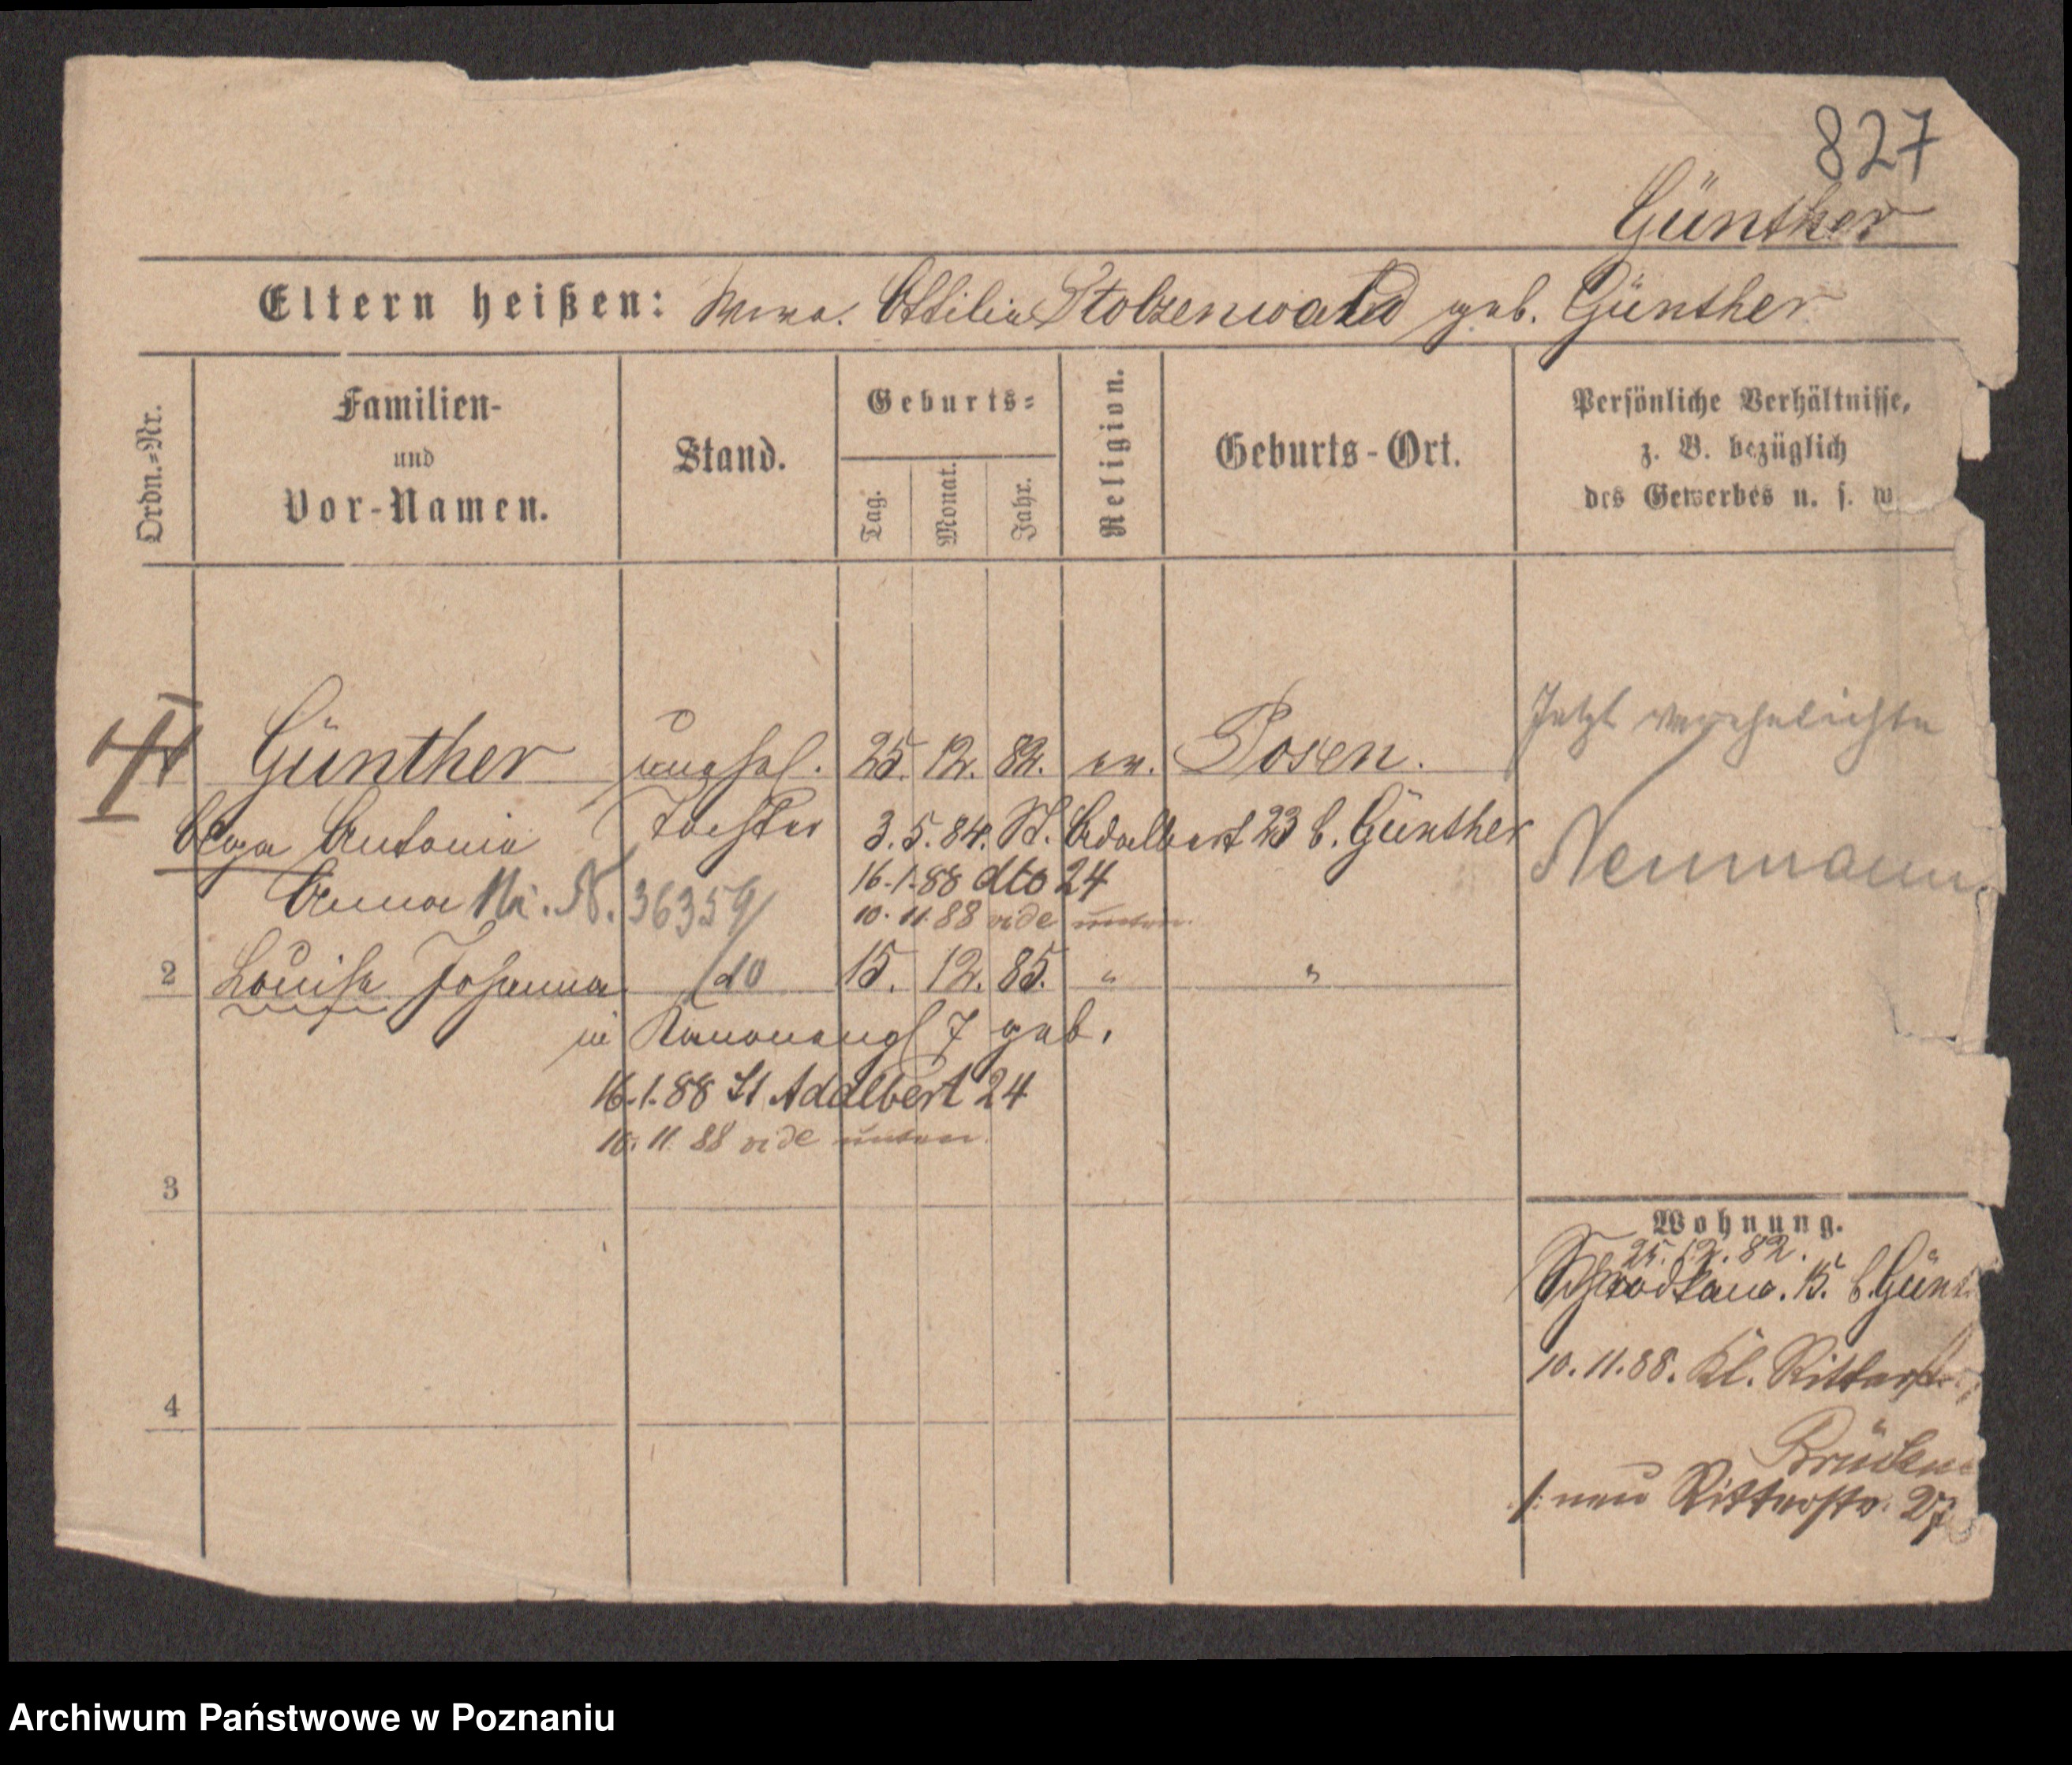 827
Günther
Eltern heißen: Wwe. Ottilie Stolzenwald geb. Günther
Ordn.=Nr.
Familien-
und
Vor-Namen.
Stand.
Geburts=
Tag.
Monat.
Jahr.
Religion.
Geburts-Ort.
Persönliche Verhältnisse,
z. B. bezüglich
des Gewerbes u. s. w
Günther unehel. 25. 12. 82. ev. Posen.
Jetzt verehelichte
Olga Antonie Tochter 3. 5. 84. St. Adalbert 23 b. Günther
Neumann
Anna N. 36359 16.1.88 dto 24
10. 11. 88 vide unten.
2 Louise Johanna do 15. 12. 85. " "
in Kanonengl 7 geb.
16.1.88 St Adalbert 24
10. 11. 88 vide unten.
3
Wohnung.
25. 12. 82.
15. b. Günt
10. 11. 88. Kl. Ritterstr.
4
Brücken
neu Ritterstr. 27
Archiwum Państwowe w Poznaniu